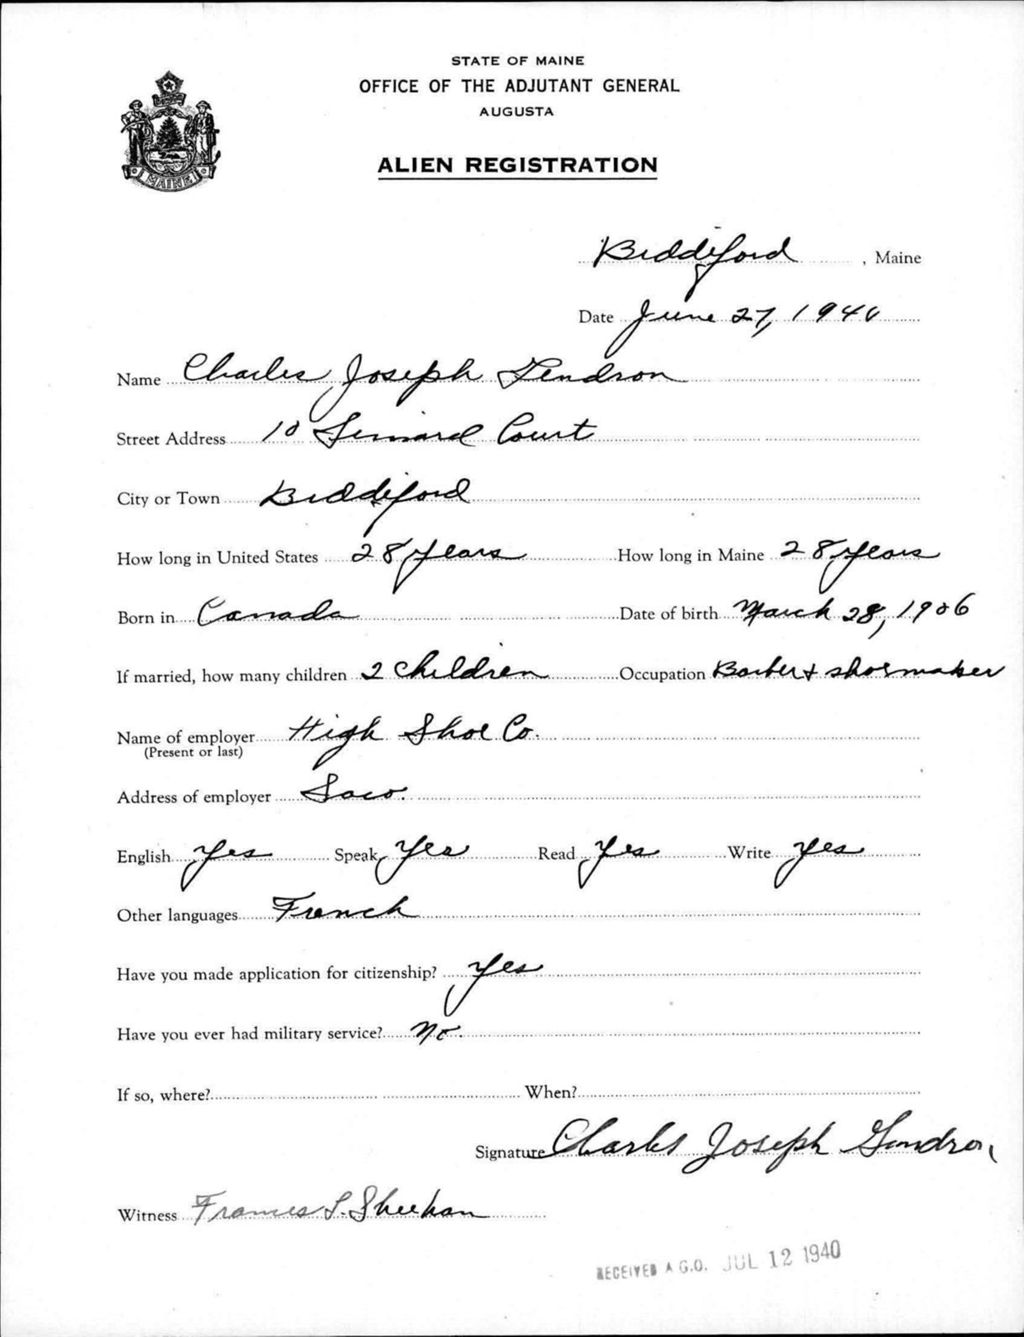 STATE OF MAINE
OFFICE OF THE ADJUTANT GENERAL
AUGUSTA
ALIEN REGISTRATION
MAINE
Biddeford, Maine
Date June 27, 1940
Name Charles Joseph Gendron
Street Address 10 Court
City or Town Biddeford
How long in United States 28 years How long in Maine 28 years
Born in Canada Date of birth March 28, 1906
If married, how many children 2 children Occupation Barber + shoemaker
Name of employer High Shoe Co.
(Present or last)
Address of employer Saco.
English Yes Speak Yes Read Yes Write Yes
Other languages French
Have you made application for citizenship? Yes
Have you ever had military service? No.
If so, where? When?
Signature Charles Joseph Gendron
Witness Frances L. Sheehan
RECEIVED A.G.O. JUL 12 1940